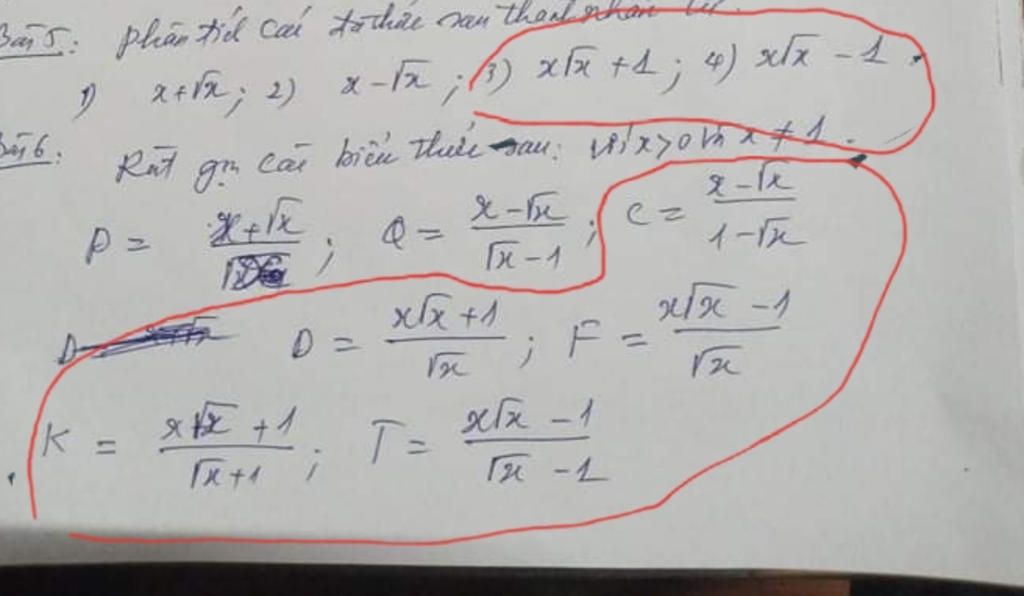 Bài 5: phân tích các đa thức sau thành nhân tử.
1) x+√x; 2) x-√x; 3) x√x +1; 4) x√x -1.
Bài 6: Rút gọn các biểu thức sau: với x>0 và x≠1.
P = x+√x / ; Q = x-√x / √x-1 ; C = x-√x / 1-√x
D D = x√x+1 / √x ; F = x√x -1 / √x
K = x√x +1 / √x+1 ; T = x√x -1 / √x -1